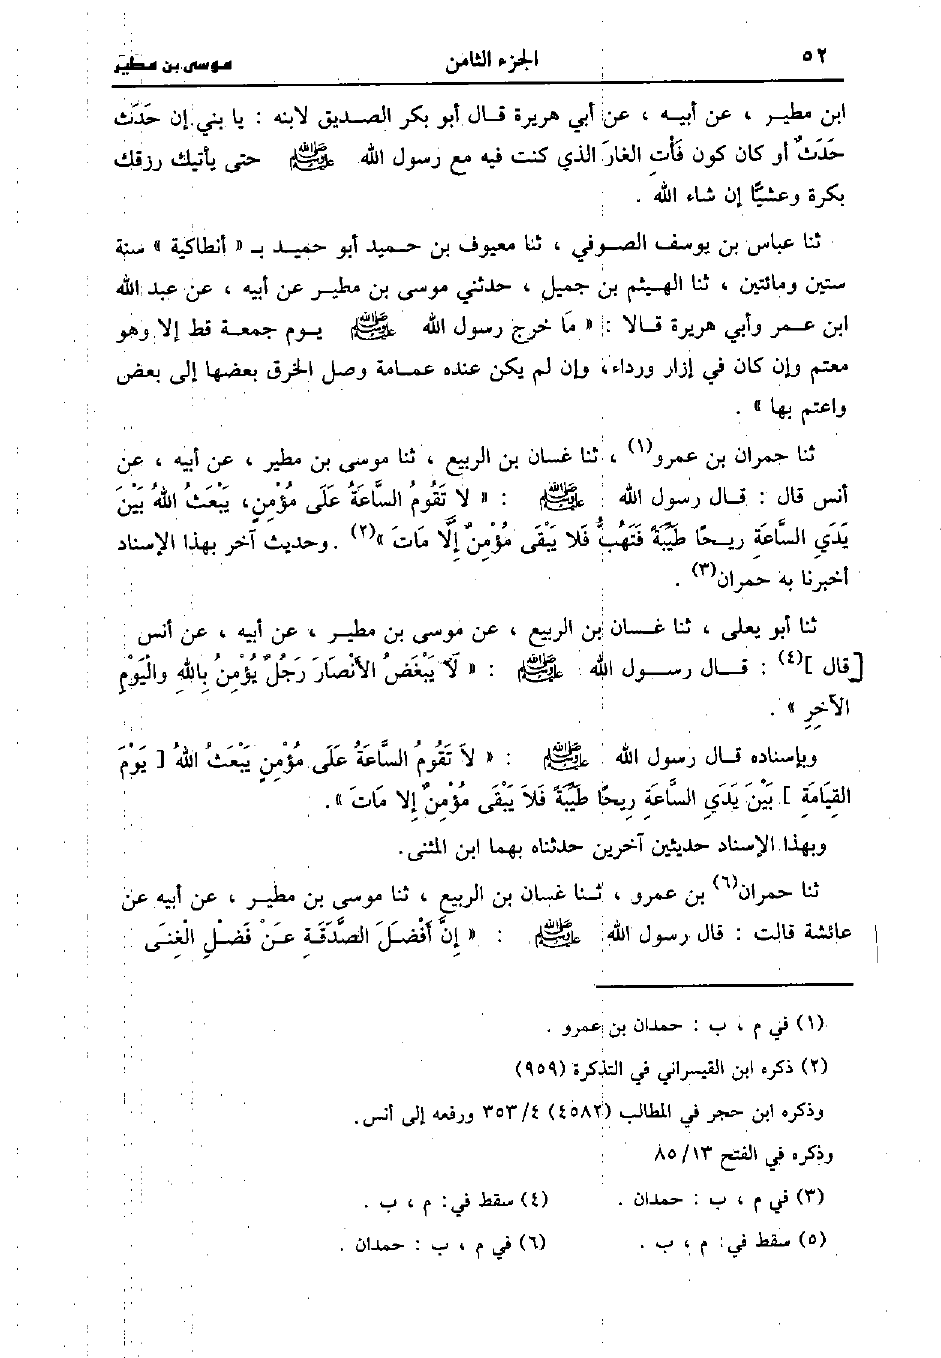 ٥٢ الجزء الثامن موسى بن مطير
ابن مطير ، عن أبيه ، عن أبي هريرة قال أبو بكر الصديق لابنه : يا بني إن حَدَثَ
حَدَثٌ أو كان كون فَأْتِ الغارَ الذي كنت فيه مع رسول الله ﷺ حتى يأتيك رزقك
بكرة وعشيًّا إن شاء الله .
ثنا عباس بن يوسف الصوفي ، ثنا معيوف بن حميد أبو حميد بـ « أنطاكية » سنة
ستين ومائتين ، ثنا الهيثم بن جميل ، حدثني موسى بن مطير عن أبيه ، عن عبد الله
ابن عمر وأبي هريرة قالا : « مَا خرج رسول الله ﷺ يوم جمعة قط إلا وهو
معتم وإن كان في إزار ورداء، وإن لم يكن عنده عمامة وصل الخرق بعضها إلى بعض
واعتم بها » .
ثنا حمران بن عمرو(١) ، ثنا غسان بن الربيع ، ثنا موسى بن مطير ، عن أبيه ، عن
أنس قال : قال رسول الله ﷺ : « لا تَقُومُ السَّاعَةُ عَلَى مُؤْمِنٍ، يَبْعَثُ اللهُ بَيْنَ
يَدَيِ السَّاعَةِ رِيحًا طَيِّبَةً فَتَهُبُّ فَلا يَبْقَى مُؤْمِنٌ إِلَّا مَاتَ »(٢) . وحديث آخر بهذا الإسناد
أخبرنا به حمران(٣) .
ثنا أبو يعلى ، ثنا غسان بن الربيع ، عن موسى بن مطير ، عن أبيه ، عن أنس
[قال ](٤) : قال رسول الله ﷺ : « لَا يَبْغَضُ الأَنْصَارَ رَجُلٌ يُؤْمِنُ بِاللهِ والْيَوْمِ
الآخِرِ » .
وبإسناده قال رسول الله ﷺ : « لاَ تَقُومُ السَّاعَةُ عَلَى مُؤْمِنٍ يَبْعَثُ اللهُ [ يَوْمَ
القِيَامَةِ ] بَيْنَ يَدَيِ السَّاعَةِ رِيحًا طَيِّبَةً فَلاَ يَبْقَى مُؤْمِنٌ إِلا مَاتَ ».
وبهذا الإسناد حديثين آخرين حدثناه بهما ابن المثنى.
ثنا حمران(٦) بن عمرو ، ثنا غسان بن الربيع ، ثنا موسى بن مطير ، عن أبيه عن
عائشة قالت : قال رسول الله ﷺ : « إِنَّ أَفْضَلَ الصَّدَقَةِ عَنْ فَضْلِ الْغِنَى
(١) في م ، ب : حمدان بن عمرو .
(٢) ذكره ابن القيسراني في التذكرة (٩٥٩)
وذكره ابن حجر في المطالب (٤٥٨٢) ٣٥٣/٤ ورفعه إلى أنس.
وذكره في الفتح ٨٥/١٣
(٣) في م ، ب : حمدان . (٤) سقط في: م ، ب .
(٥) سقط في: م ، ب . (٦) في م ، ب : حمدان .